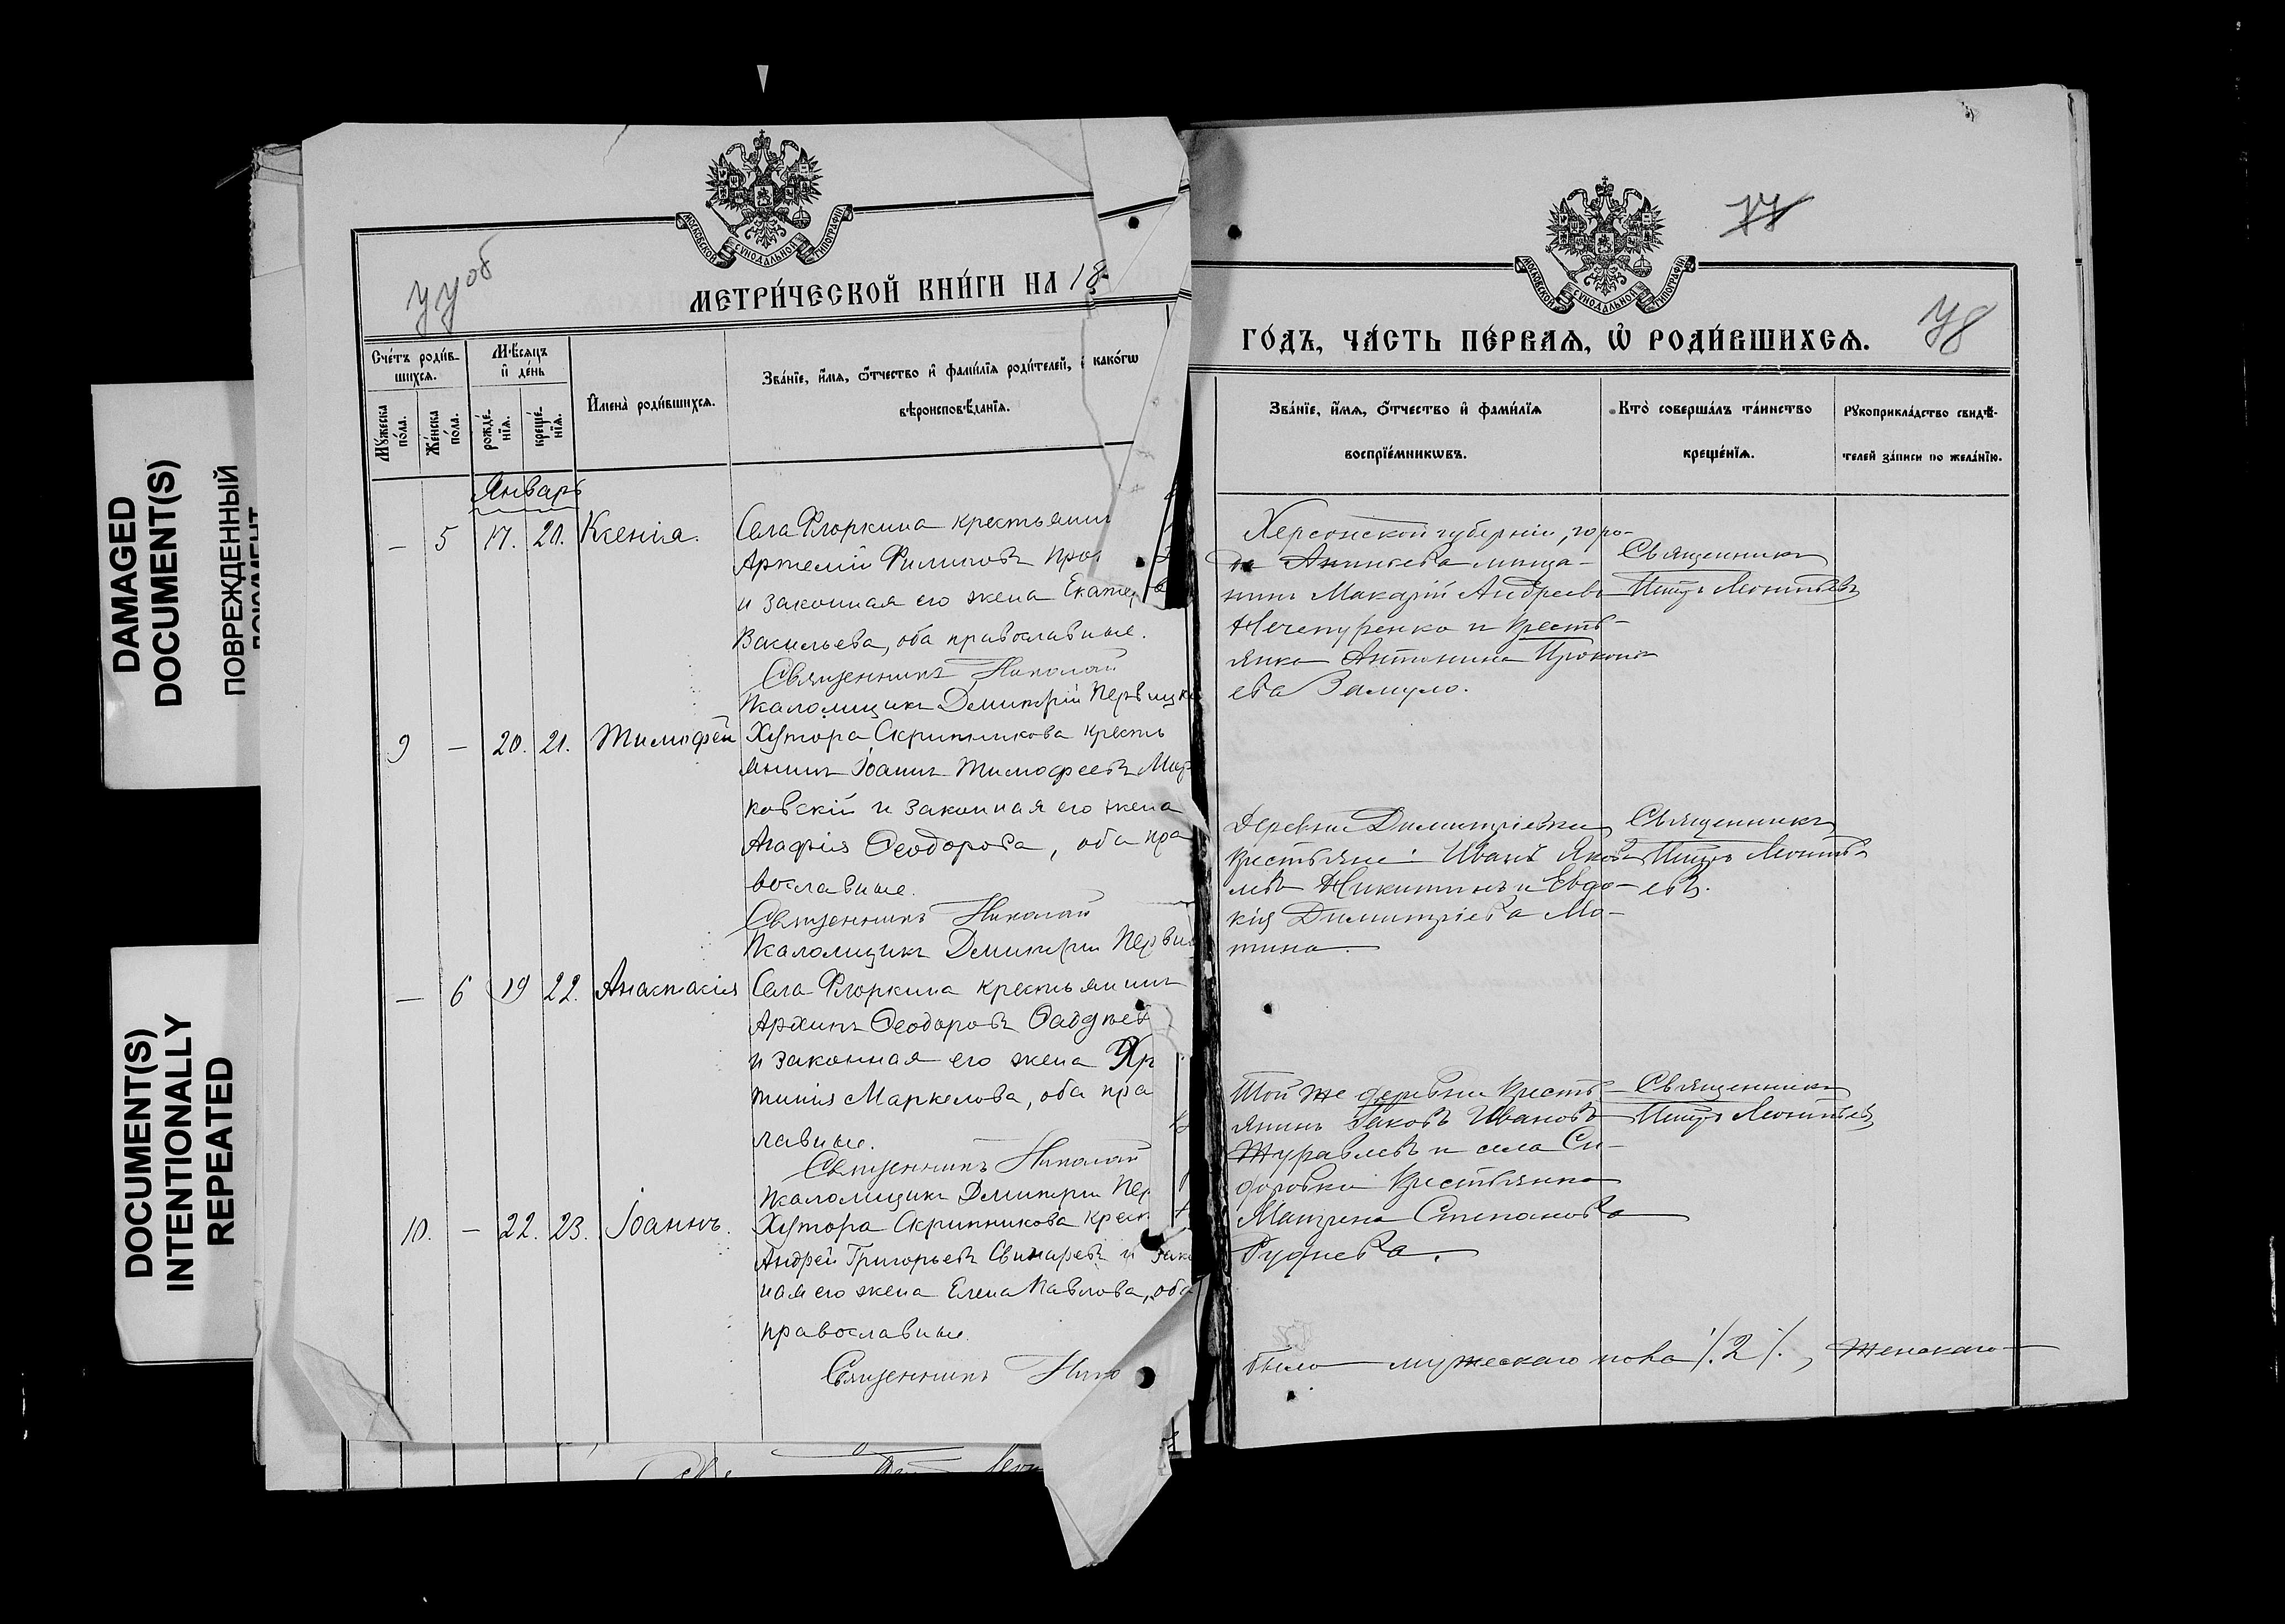 DAMAGED
DOCUMENT(S)
ПОВРЕЖДЕННЫЙ
DOCUMENT(S)
INTENTIONALLY
REPEATED
МОСКОВСКОЙ СѴНОДАЛЬНОЙ ТИПОГРАФІИ
МЕТРИ́ЧЕСКОЙ КНИ́ГИ НА 18
Сче́тъ роди́в-
шихсѧ.
Мѣ́сѧцъ
и҆ де́нь
Мꙋ́жеска
по́ла.
Же́нска
по́ла.
рожде́-
нїѧ.
креще́-
нїѧ.
И҆мена̀ роди́вшихсѧ.
Зва́нїе, и҆́мѧ, ѻ҆́тчество и҆ фами́лїѧ роди́телей, и҆ како́гѡ
вѣроисповѣ́данїѧ.
Январь
— 5 17. 20. Ксенія.
Села Флоркина крестьянин
Артемій Филиповъ
и законная его жена
Васильева, оба православные.
Священникъ Николай
Псаломщикъ Димитрій
9 — 20. 21. Тимофей
Хутора Скрипникова кресть
янинъ Іоаннъ Тимофеевъ
ковскій и законная его жена
Агафія Ѳеодорова, оба пра
вославные.
Священникъ Николай
Псаломщикъ Димитрій
— 6 19 22. Анастасія
Села Флоркина крестьянинъ
Архипъ Ѳеодоровъ
и законная его жена
тинія Маркелова, оба пра
лавные.
Священникъ Николай
Псаломщикъ Димитрій
10. — 22. 23. Іоаннъ.
Хутора Скрипникова
Андрей Григорьевъ Свинаревъ и
ная его жена Елена Павлова, оба
православные.
Священникъ
МОСКОВСКОЙ СѴНОДАЛЬНОЙ ТИПОГРАФІИ
77
78
ГО́ДЪ, ЧА́СТЬ ПЕ́РВАѦ, Ѡ҆ РОДИ́ВШИХСѦ.
Зва́нїе, и҆́мѧ, ѻ҆́тчество и҆ фами́лїѧ
воспрїе́мникѡвъ.
Кто̀ соверша́лъ та́инство
креще́нїѧ.
Рꙋкоприкла́дство свидѣ́-
телей за́писи по жела́нїю.
Херсонской губерніи, горо-
да Ананьева мѣща-
нинъ Макарій Андреевъ
Нечепуренко и кресть-
янка Антонина Прокопі
ева Замуло.
Священникъ
Петръ Леонтьевъ
Деревни Димитріевки
крестьяне: Иванъ Яков
левъ Никитинъ и Евдо-
кія Димитріева Мо-
тина.
Священникъ
Петръ Леонть-
евъ.
Той же деревни кресть-
янинъ Іаковъ Ивановъ
Журавлевъ и села Си-
доровки крестьянка
Матрена Степанова
Руднева.
Священникъ
Петръ Леонтьевъ
было мужескаго пола /.2/., женскаго